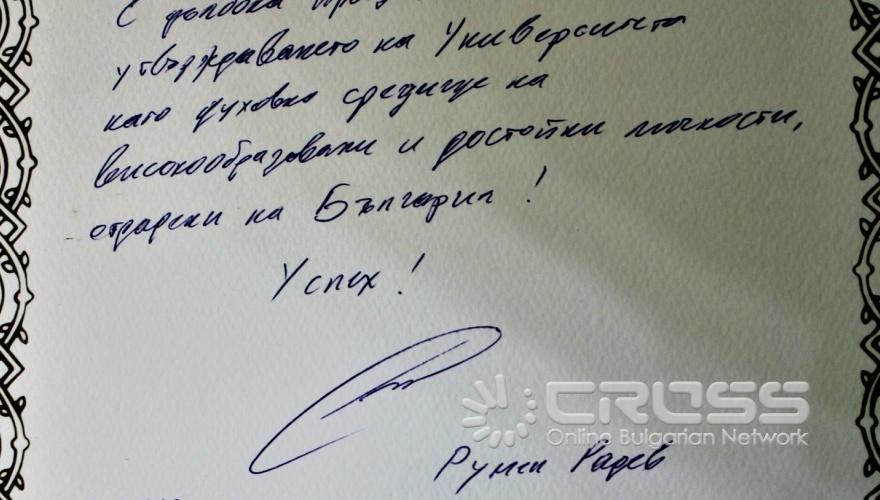 С дълбока
утвърждаването на Университета
като духовно средище на
високообразовани и достойни личности,
отдадени на България!
Успех!
Румен Радев
CROSS
Online Bulgarian Network